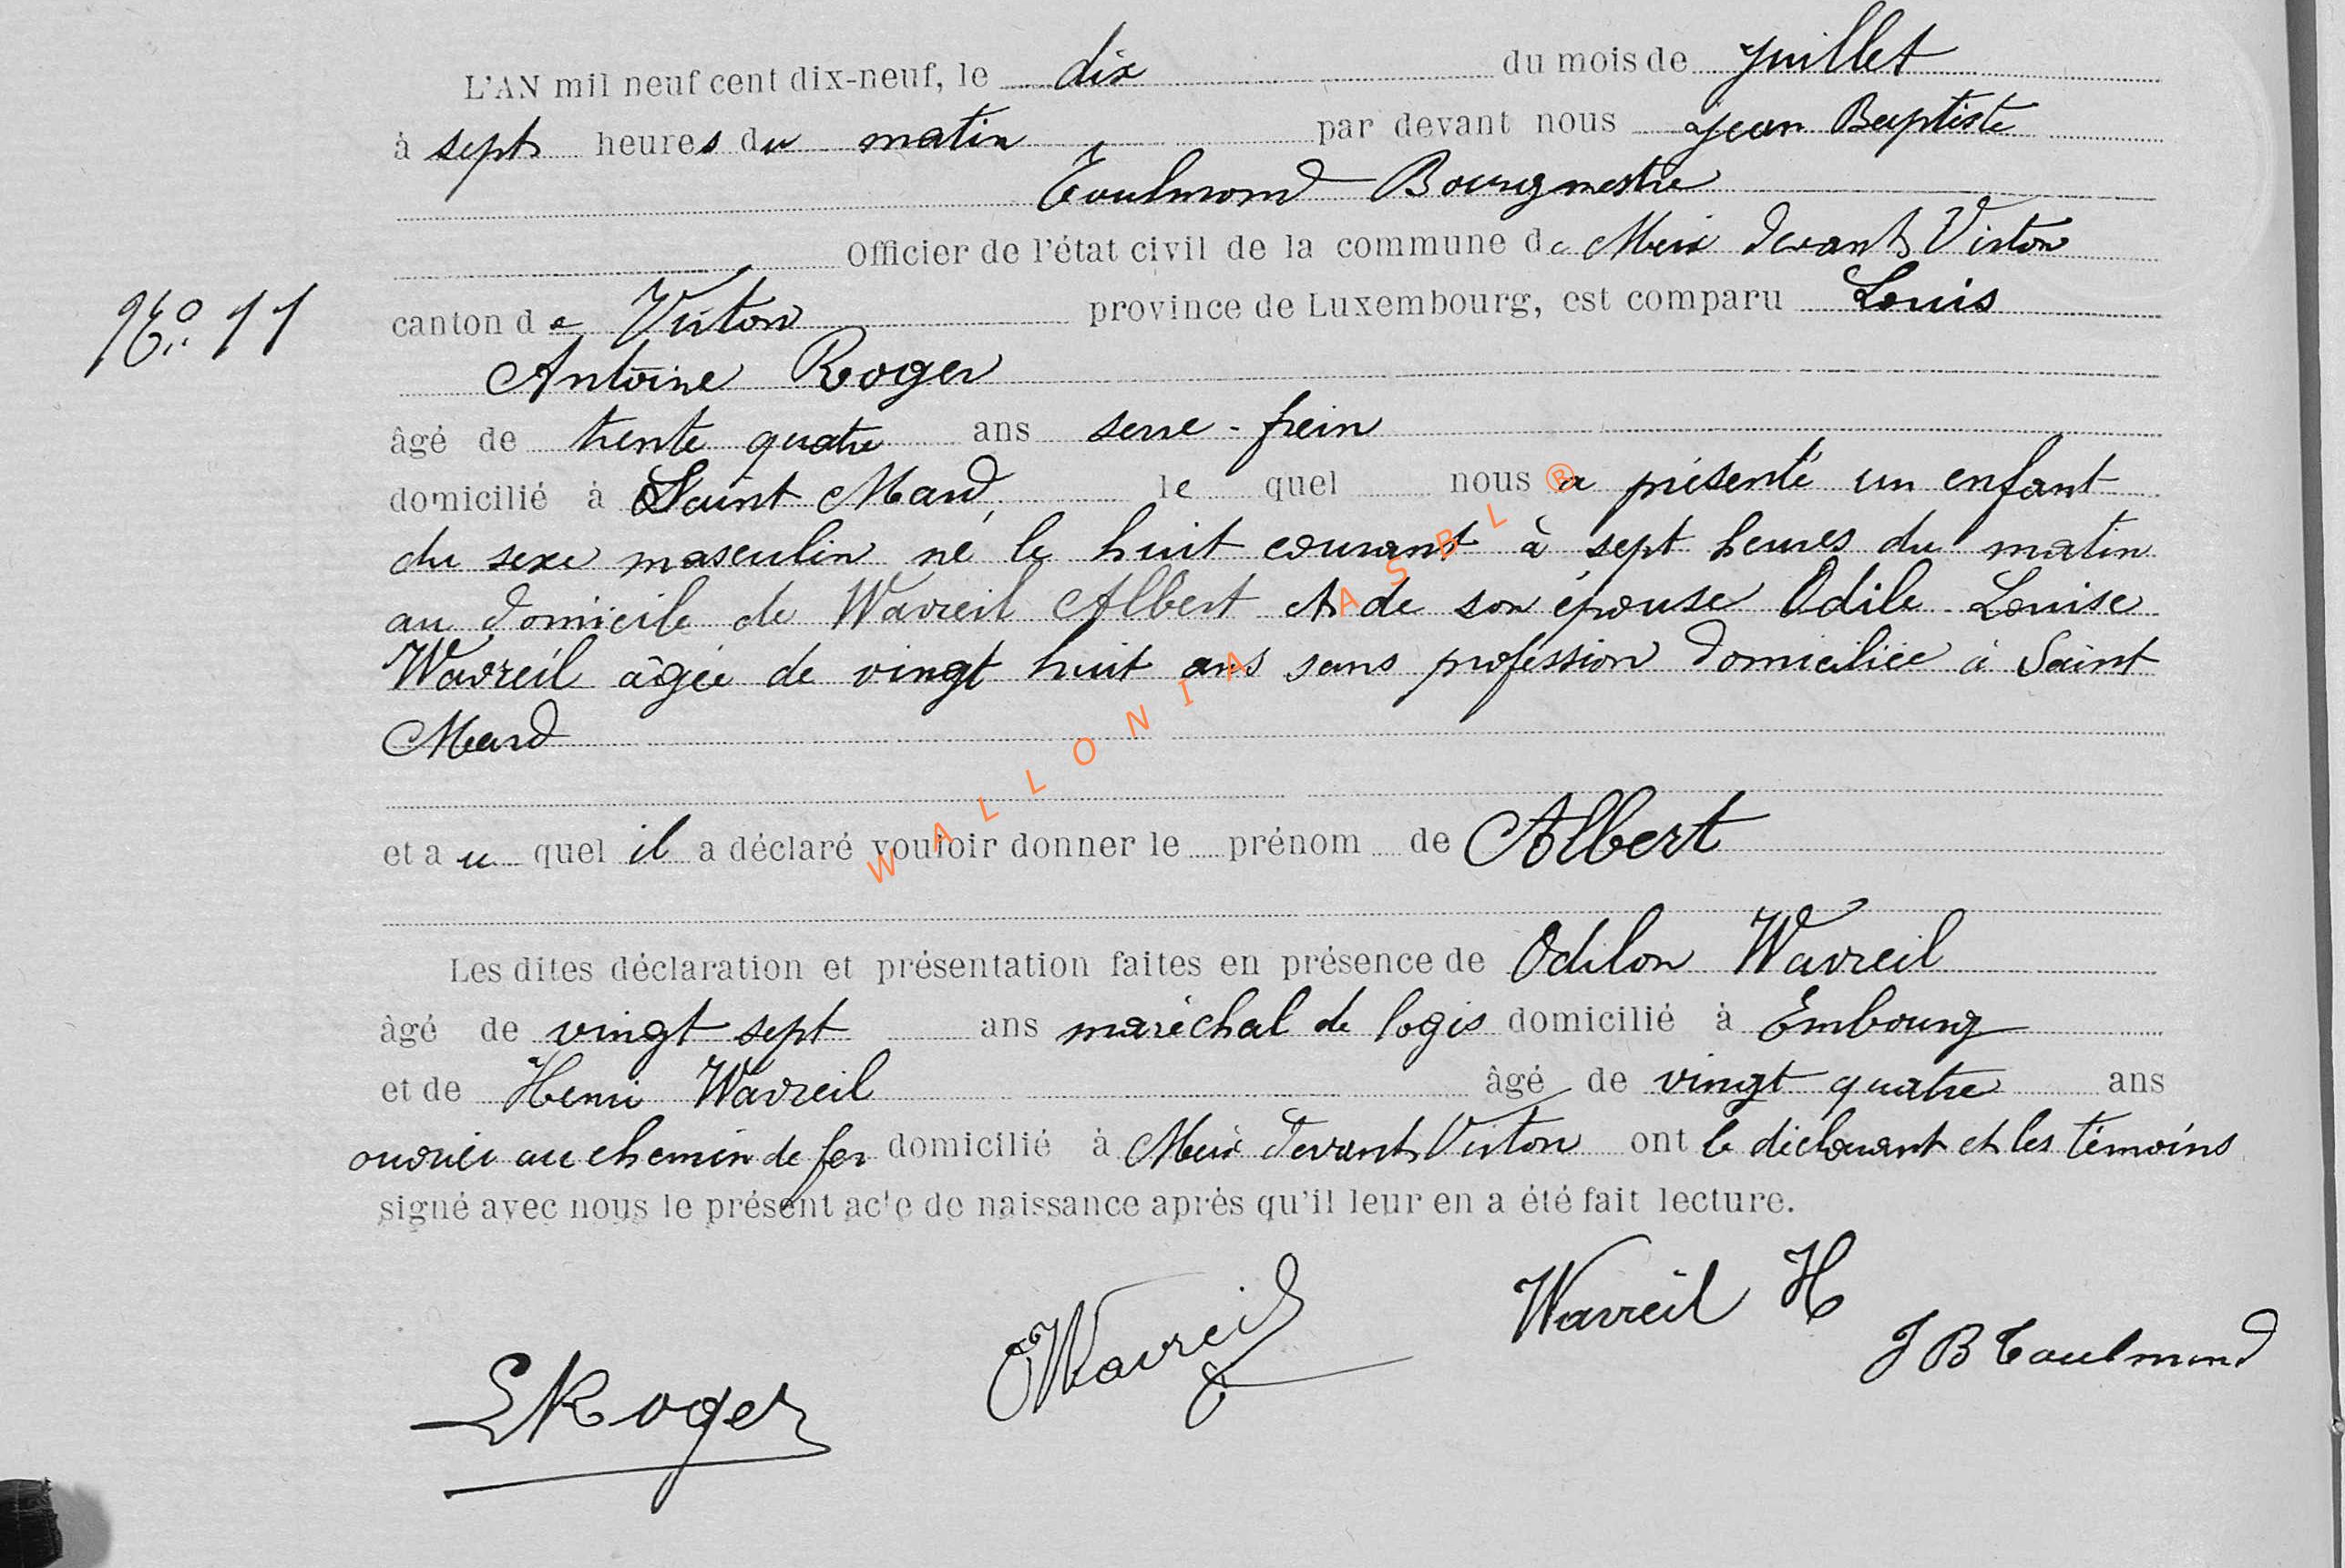 L'AN mil neuf cent dix-neuf, le dix du mois de Juillet
à sept heures du matin par devant nous Jean Baptiste
Toulmond Bourgmestre
Officier de l'état civil de la commune de Meix devant Virton
N° 11
canton de Virton province de Luxembourg, est comparu Louis
Antoine Roger
âgé de trente quatre ans serre-frein
domicilié à Saint Mard, le quel nous a présenté un enfant
du sexe masculin né le huit courant à sept heures du matin
au domicile de Wavreil Albert et de son épouse Odile Louise
Wavreil âgée de vingt huit ans sans profession domiciliée à Saint
Mard
et au quel il a déclaré vouloir donner le prénom de Albert
Les dites déclaration et présentation faites en présence de Odilon Wavreil
âgé de vingt sept ans maréchal de logis domicilié à Embourg
et de Henri Wavreil âgé de vingt quatre ans
ouvrier au chemin de fer domicilié à Meix devant Virton ont le déclarant et les témoins
signé avec nous le présent acte de naissance après qu'il leur en a été fait lecture.
L Roger
O Wavreil
Wavreil H
J B Toulmond
WALLONIA ASBL ®